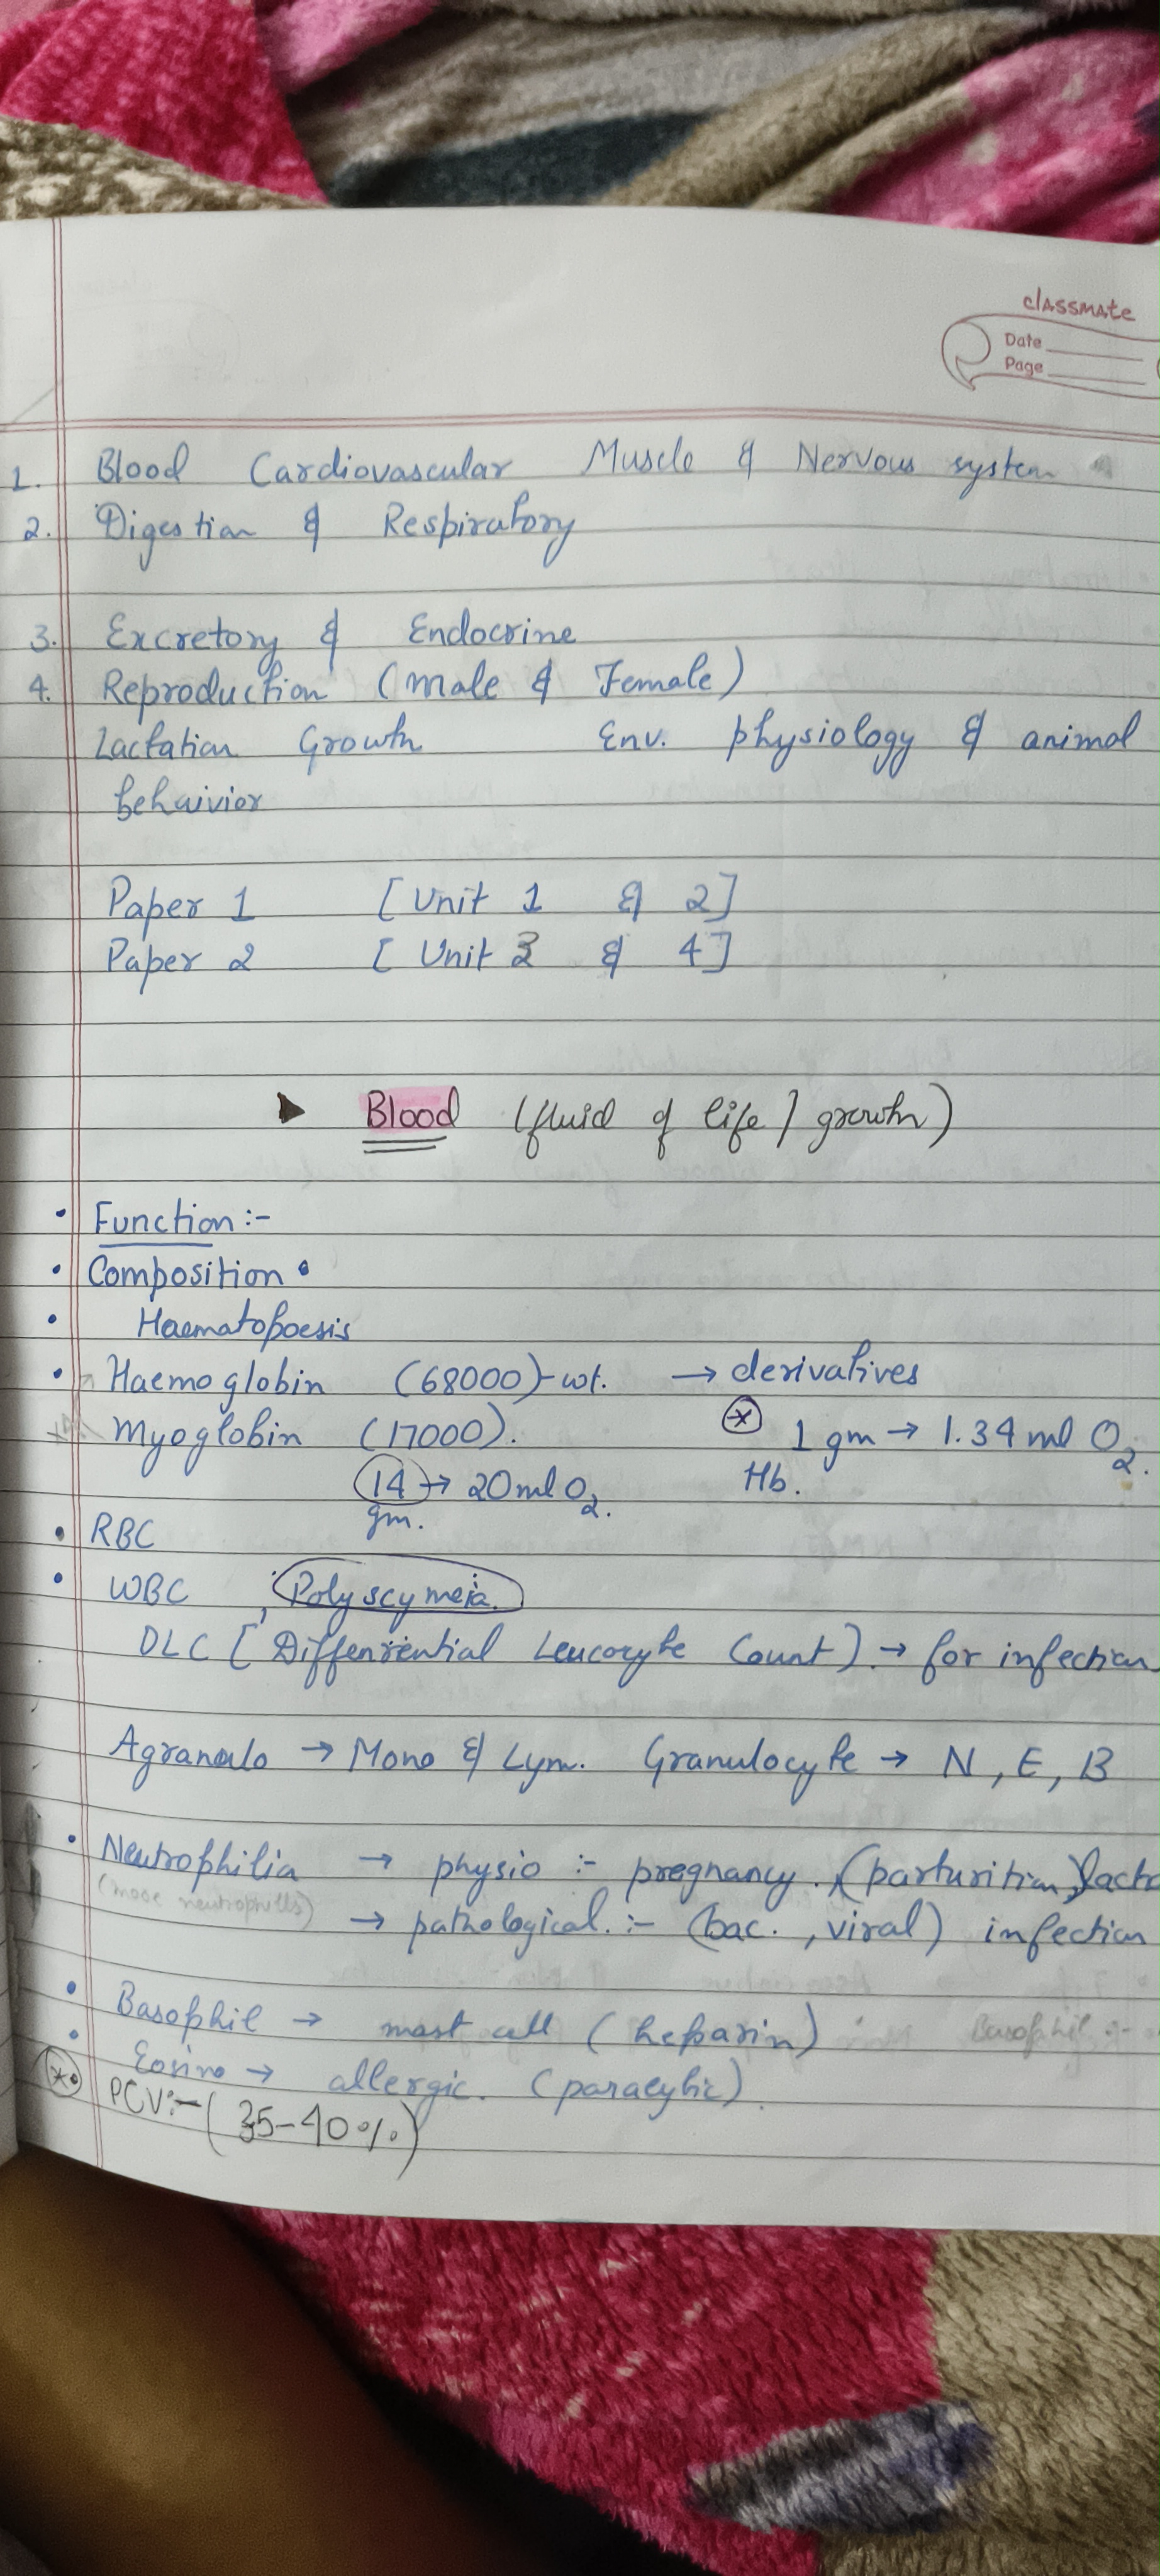 classmate
Date
Page
1. Blood Cardiovascular Muscle & Nervous system
2. Digestion & Respiratory
3. Excretory & Endocrine
4. Reproduction (Male & Female)
Lactation Growth Env. physiology & animal
behaivior
Paper 1 [Unit 1 & 2]
Paper 2 [Unit 3 & 4]
Blood (fluid of life / growth)
• Function :-
• Composition •
• Haematopoesis
• Haemoglobin (68000)-wt. → derivatives
Myoglobin (17000). * 1 gm → 1.34 ml O2.
14 → 20 ml O2. Hb.
gm.
• RBC
• WBC , Polyscymeia.
DLC [Differential Leucocyte Count) → for infection
Agranulo → Mono & Lym. Granulocyte → N, E, B
• Neutrophilia → physio :- pregnancy. (parturition) lacta
(more neutrophills) → pathological. :- (bac. , viral) infection
• Basophil → mast cell (heparin)
• Eosino → allergic. (paracytic).
* PCV:- (35-40%)